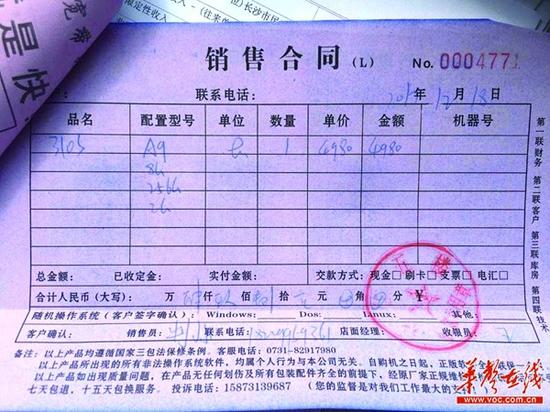 限定性收入
长沙市民
宽带
是快
销售合同(L) No. 0004771
联系电话: 2015年12月18日
品名 配置型号 单位 数量 单价 金额 机器号
3165 A9 台 1 4980 4980
8G
256G
2G
总金额: 已收定金: 实付金额: 交款方式: 现金□ 刷卡□ 支票□ 电汇□
合计人民币(大写): 万 仟 佰 拾 元 角 分 ¥
随机操作系统(客户签字确认): Windows: Dos: Linux: 其他:
客户确认: 销售员: 联系电话: 店面经理: 收银员:
备注: 以上产品均遵循国家三包法保修条例。客服电话: 0731-82917980
以上产品所出现的所有非法操作系统软件, 均属个人行为与本公司无关。自购机之日起, 正版软
以上产品如出现质量问题, 在产品无任何划伤及所有包装配件齐全的前提下, 经原厂家正规
七天包退, 十五天包换服务。 投诉电话: 15873139687 (您的监督是对我们工作最大的
第一联财务 第二联客户 第三联库房 第四联技术
华声在线
www.voc.com.cn